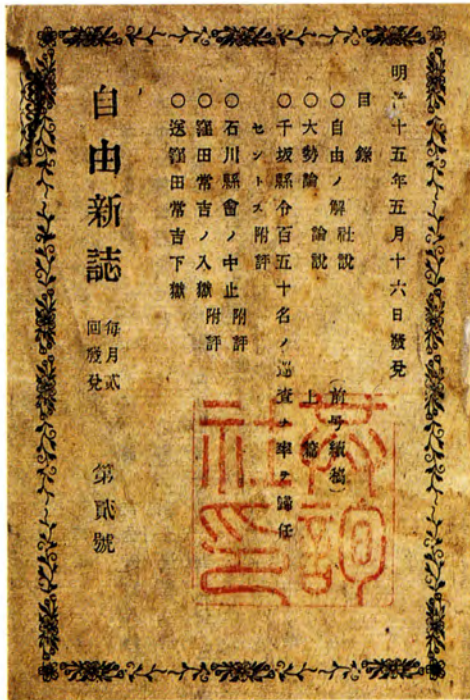 明治十五年五月十六日發兌
目錄
○自由ノ解 社説 (前号續稿)
○大勢論 論説 上篇
○千坂縣令百五十名ノ巡査ヲ率テ歸任
セントス附評
○石川縣會ノ中止附評
○窪田常吉ノ入獄附評
○送窪田常吉下獄
自由新誌 毎月貳回發兌 第貳號